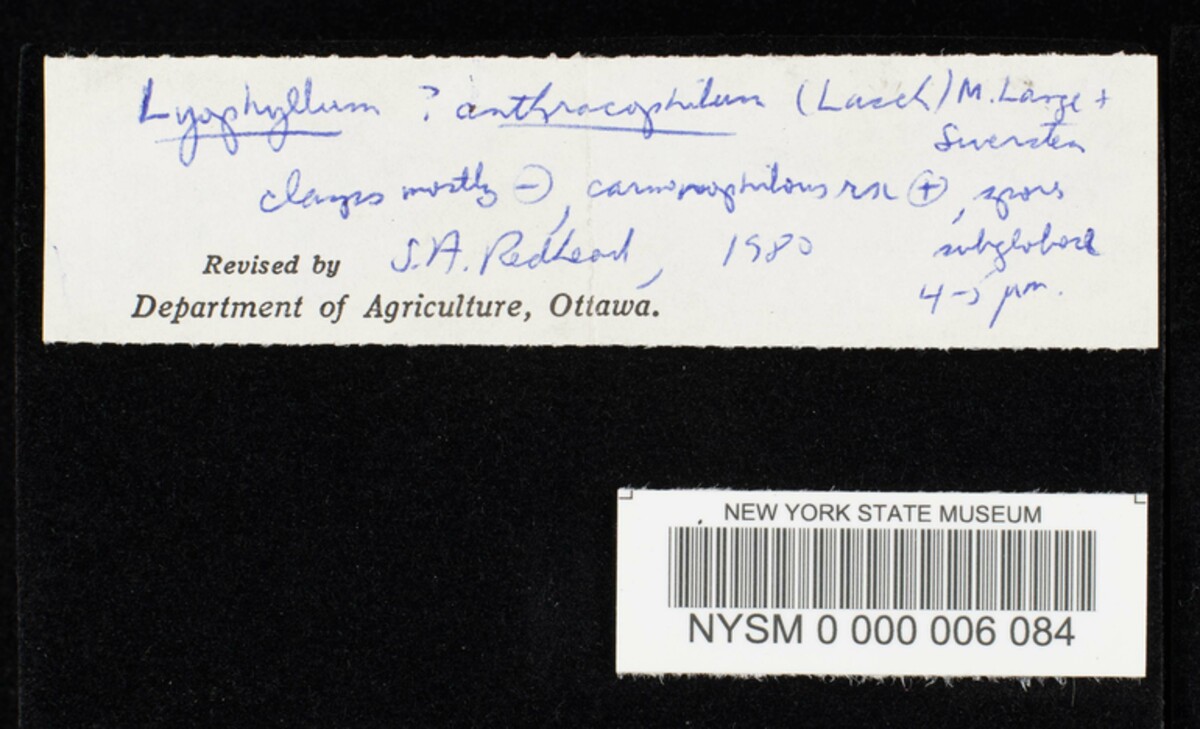 Lyophyllum ? anthracophilum (Lasch) M. Lange +
Siversten
clamps mostly ⊖, carminophilous rxn ⊕, spores
subglobose
4-5 µm.
Revised by S.A. Redhead, 1980
Department of Agriculture, Ottawa.
NEW YORK STATE MUSEUM
NYSM 0 000 006 084